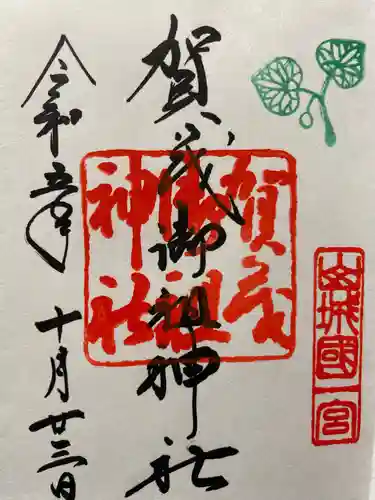 山城國一宮
賀茂御祖神社
賀茂御祖神社
令和五年
十月廿三日